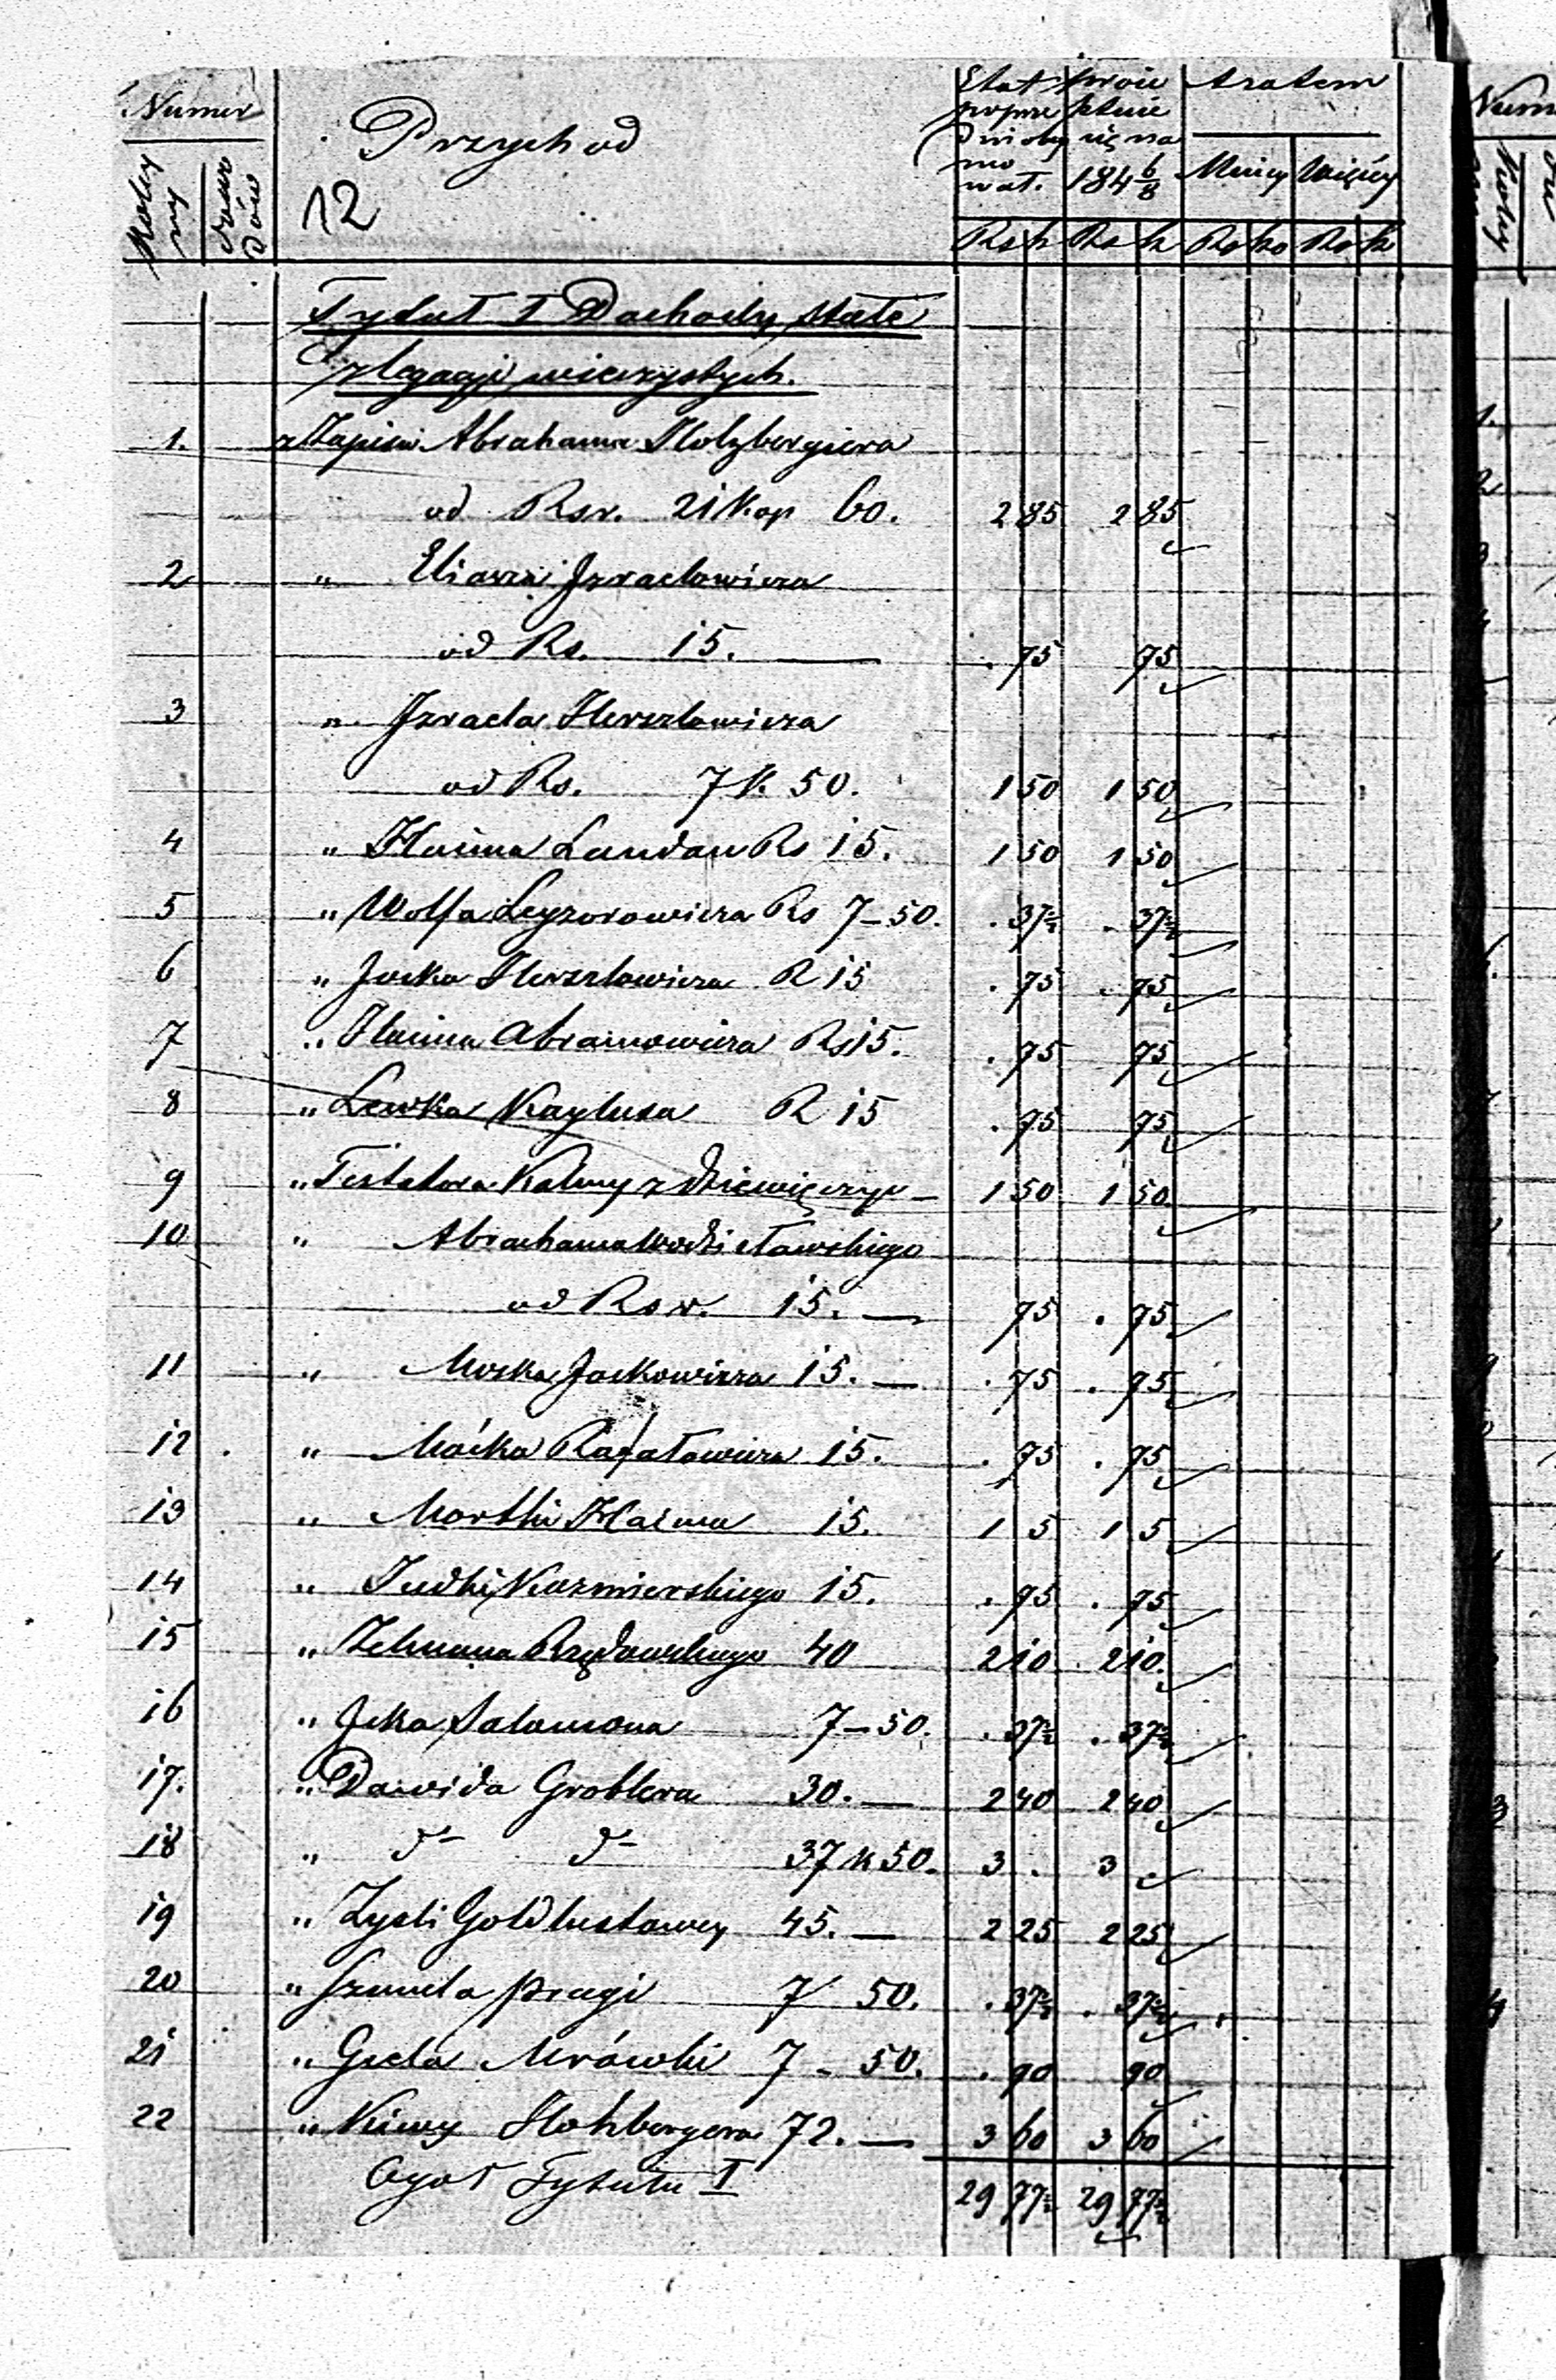 Numer
Koley
ny
dowo
dów
Przychod
12
Etat
poprze
dnio oby
mo
wał.
proie
ktuie
się na
184 6/8
zratem
Mniey Więcey
Rs k Rs k Rs ko Rs k
Tytuł I Dochody stałe
z legacyi wieczystych.
1. z Zapisu Abrahama Holzbergiera
od Rsr. 21 Kop 60. 2 85 2 85
2 " Eliasza Jzraelowicza
od Rs. 15. — . 75 75
3 " Jzraela Herszlowicza
od Rs. 7 K. 50. 1 50 1 50
4 " Haima Landau Rs 15. 1 50 1 50
5 " Wolfa Leyzorowicza Rs 7–50. . 37½ . 37½
6 " Joska Herszlowicza R 15 . 75 . 75
7 " Haima Abramowicza Rs 15. . 75 75
8 " Lewka Kaylusa R 15 . 75 75
9 " Testatora Kalmy z Dziewięczyc — 1 50 1 50
10 " Abrahama Wodzisławskiego
od Rsr. 15. — 75 . 75
11 " Moska Joskowicza 15. — . 75 . 75
12 . " Mośka Rafałowicza 15. . 75 . 75
13 " Morthi Haima 15. 1 5 1 5
14 " Judki Kazmierskiego 15. . 75 . 75
15 " Zelmana Rzędowskiego 40 2 10 2 10.
16 " Jcka Salamona 7–50. . 37½ . 37½
17. " Dawida Groblera 30. — 2 40 2 40
18 " d– d– 37 k 50. 3 . 3
19 " Zysli Goldlustowey 45. — 2 25 2 25
20 " Szmula pragi 7 50. . 37½ . 37½
21 " Gecla Mrówki 7 – 50. . 90 90
22 " Kiwy Hohbergera 72. — 3 60 3 60
Ogoł Tytułu I 29 77½ 29 77½